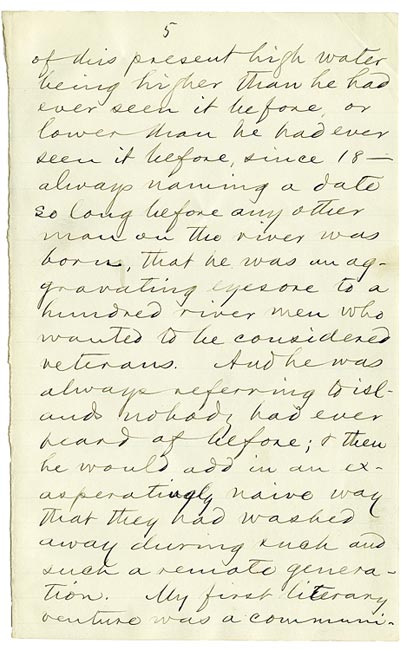 5
of this present high water
being higher than he had
ever seen it before, or
lower than he had ever
seen it before, since 18—
always naming a date
so long before any other
man on the river was
born, that he was an ag-
gravating eyesore to a
hundred river men who
wanted to be considered
veterans. And he was
always referring to isl-
ands nobody had ever
heard of before; & then
he would add in an ex-
asperatingly naive way
that they had washed
away during such and
such a remote genera-
tion. My first literary
venture was a communi-